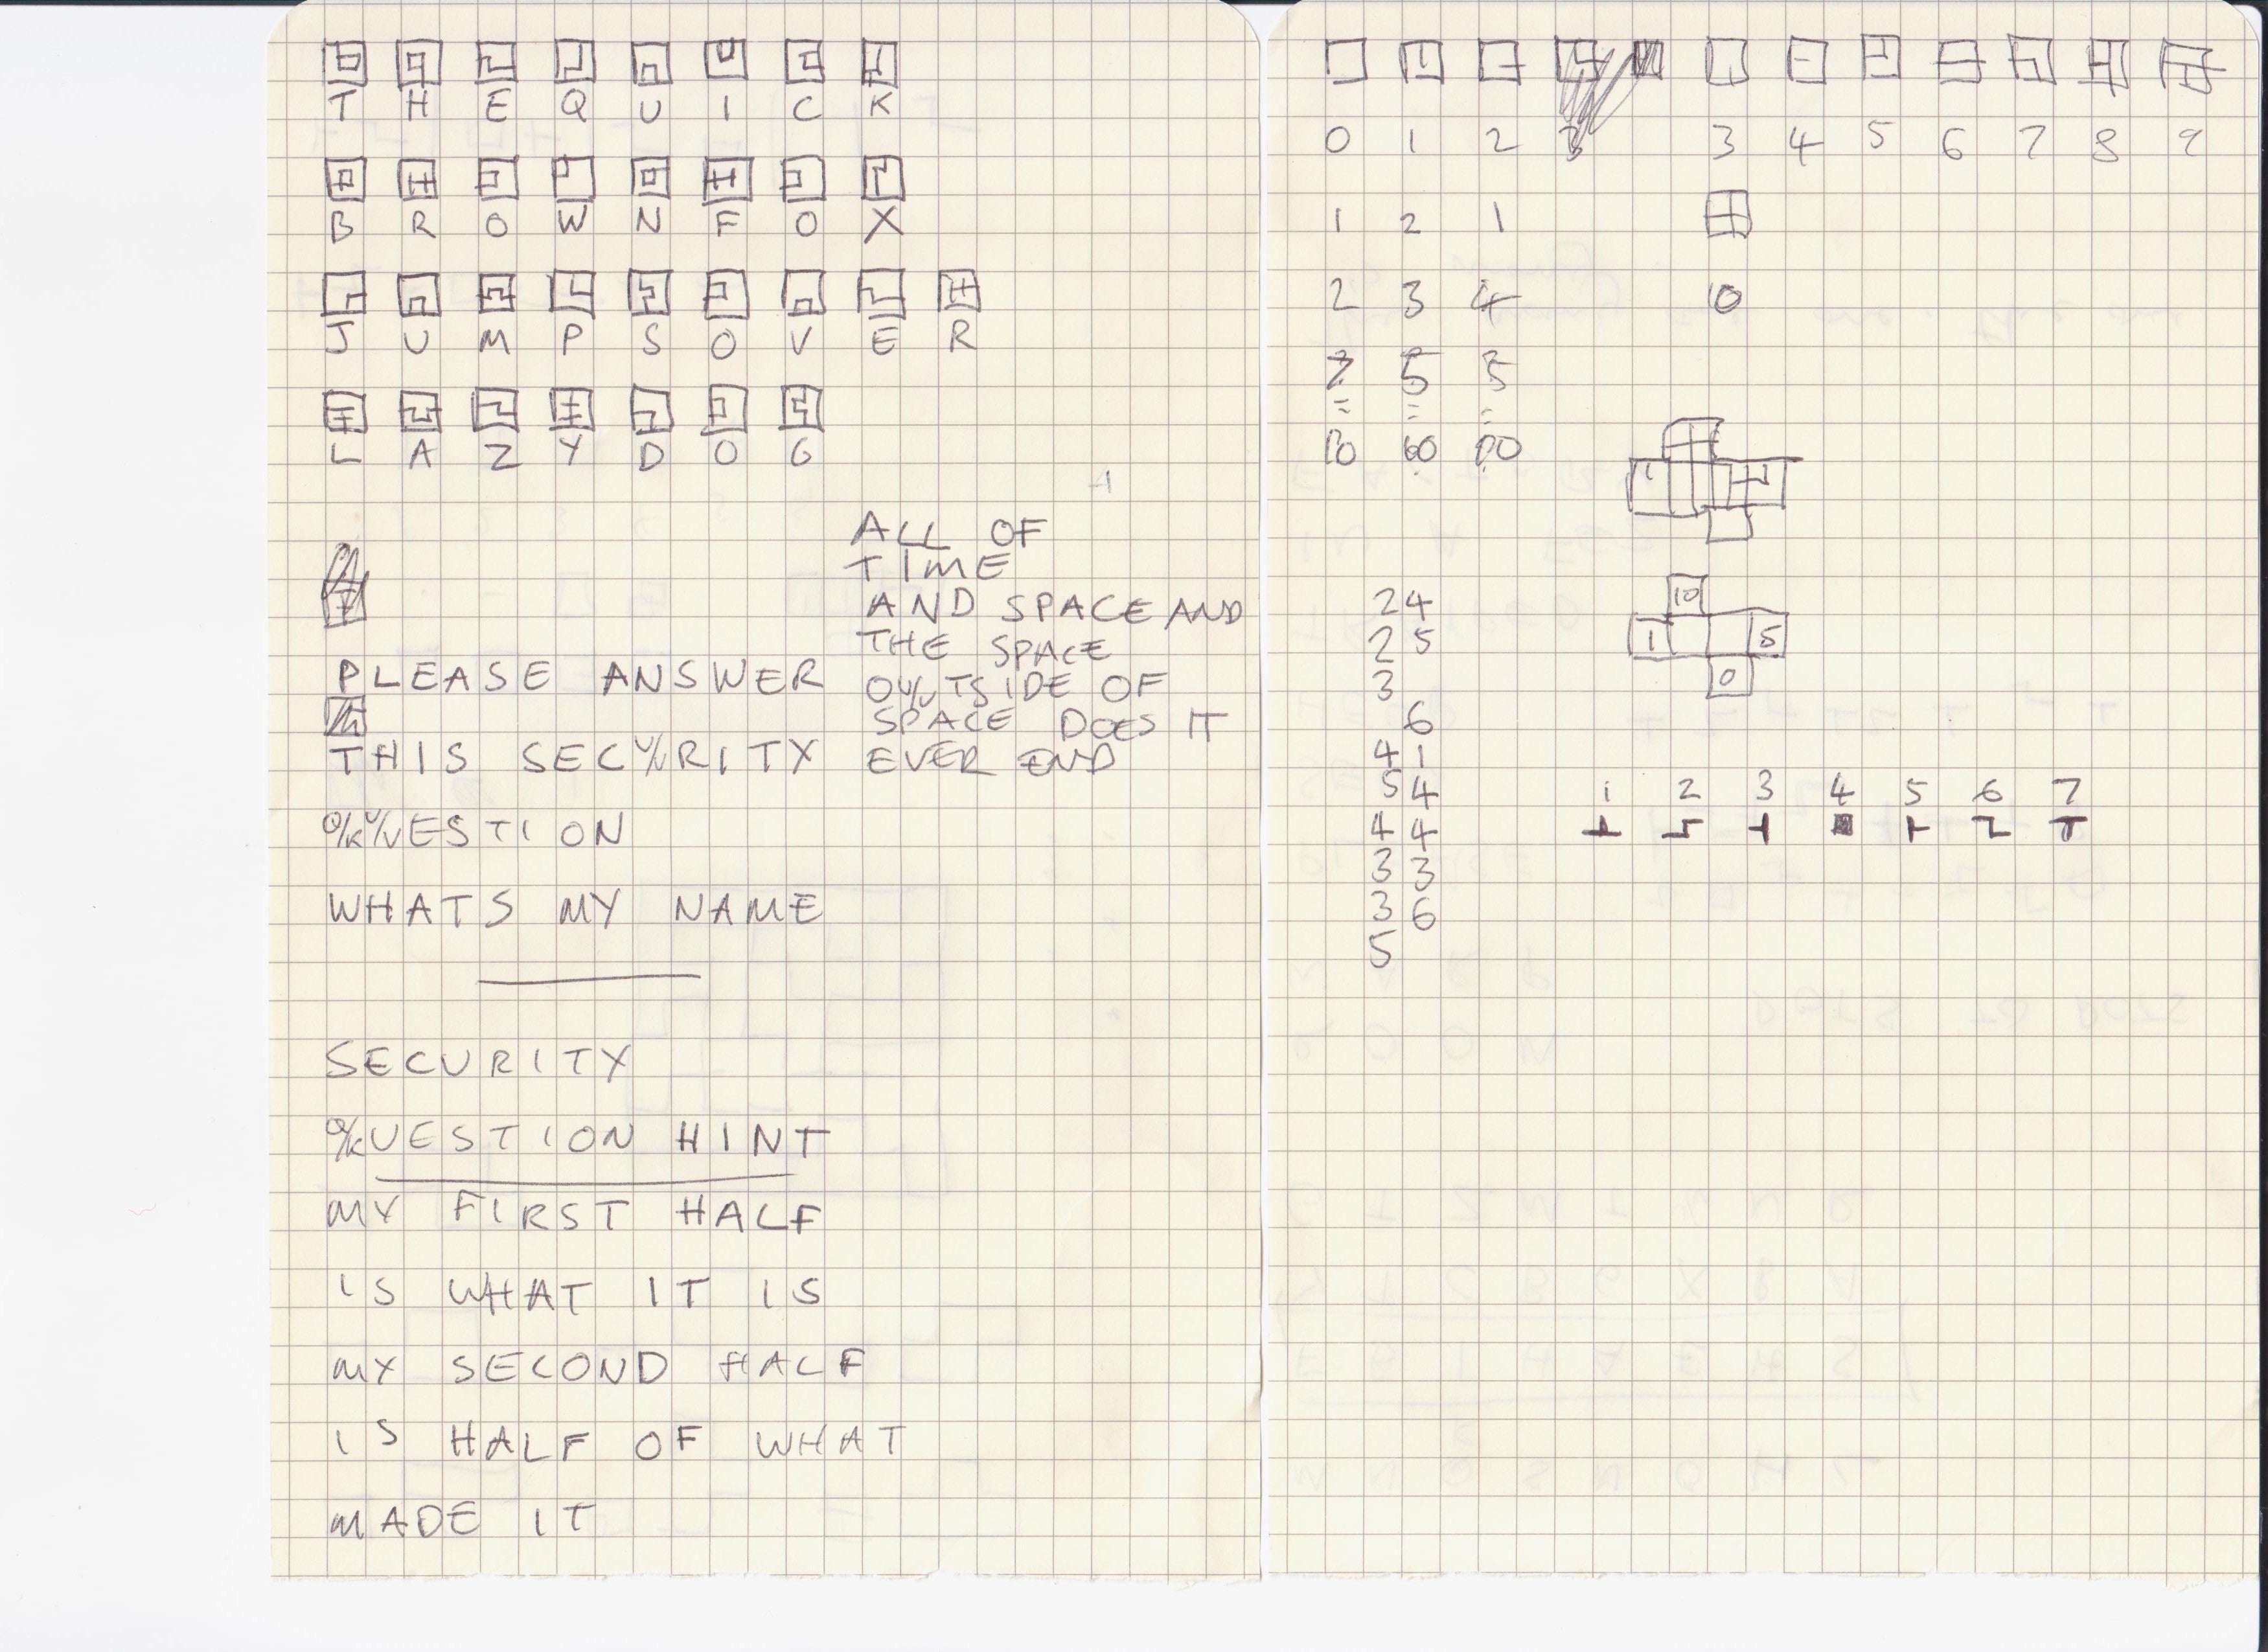 T H E Q U I C K
B R O W N F O X
J U M P S O V E R
L A Z Y D O G
PLEASE ANSWER
THIS SECURITY
Q/KU/VESTION
WHATS MY NAME
SECURITY
Q/KUESTION HINT
MY FIRST HALF
IS WHAT IT IS
MY SECOND HALF
IS HALF OF WHAT
MADE IT
ALL OF
TIME
AND SPACE AND
THE SPACE
OU/VTSIDE OF
SPACE DOES IT
EVER END
0 1 2 3 3 4 5 6 7 8 9
1 2 1
2 3 4 10
7 5 5
= = =
10 60 20
10
1 5
0
24
25
3
6
41
54
44
33
36
5
1 2 3 4 5 6 7